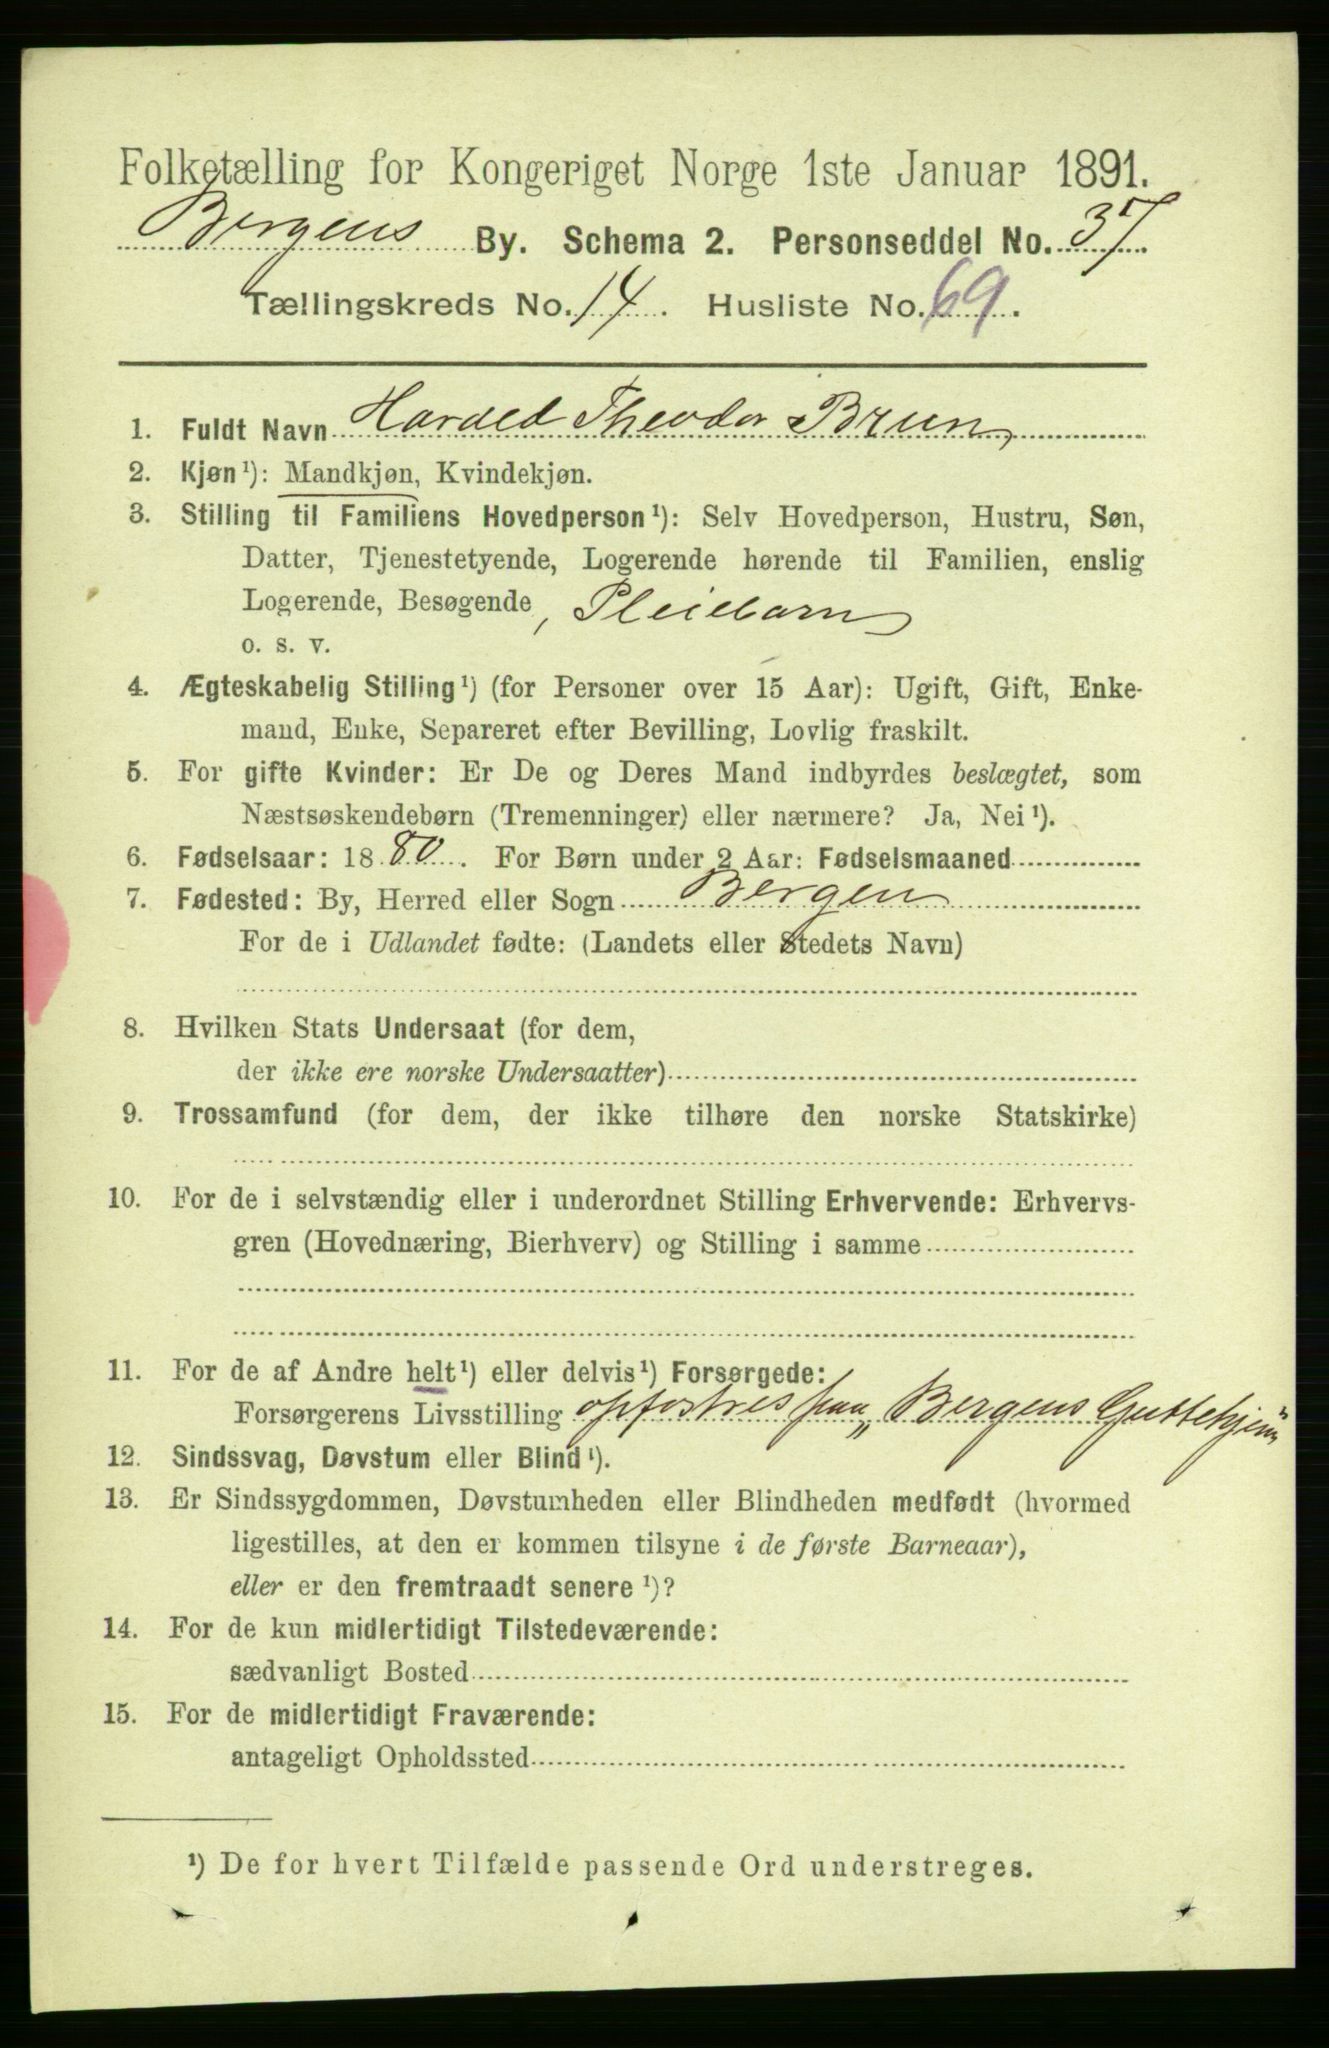 Folketælling for Kongeriget Norge 1ste Januar 1891.
Bergens By. Schema 2. Personseddel No. 37.
Tællingskreds No. 14. Husliste No. 69.
1. Fuldt Navn Harald Theodor Brun
2. Kjøn¹): Mandkjøn, Kvindekjøn.
3. Stilling til Familiens Hovedperson¹): Selv Hovedperson, Hustru, Søn,
Datter, Tjenestetyende, Logerende hørende til Familien, enslig
Logerende, Besøgende, Pleiebarn
o. s. v.
4. Ægteskabelig Stilling¹) (for Personer over 15 Aar): Ugift, Gift, Enke-
mand, Enke, Separeret efter Bevilling, Lovlig fraskilt.
5. For gifte Kvinder: Er De og Deres Mand indbyrdes beslægtet, som
Næstsøskendebørn (Tremenninger) eller nærmere? Ja, Nei¹).
6. Fødselsaar: 1880. For Børn under 2 Aar: Fødselsmaaned
7. Fødested: By, Herred eller Sogn Bergen
For de i Udlandet fødte: (Landets eller Stedets Navn)
8. Hvilken Stats Undersaat (for dem,
der ikke ere norske Undersaatter)
9. Trossamfund (for dem, der ikke tilhøre den norske Statskirke)
10. For de i selvstændig eller i underordnet Stilling Erhvervende: Erhvervs-
gren (Hovednæring, Bierhverv) og Stilling i samme
11. For de af Andre helt¹) eller delvis¹) Forsørgede:
Forsørgerens Livsstilling opfostres paa „Bergens Guttehjem"
12. Sindssvag, Døvstum eller Blind¹).
13. Er Sindssygdommen, Døvstumheden eller Blindheden medfødt (hvormed
ligestilles, at den er kommen tilsyne i de første Barneaar),
eller er den fremtraadt senere¹)?
14. For de kun midlertidigt Tilstedeværende:
sædvanligt Bosted
15. For de midlertidigt Fraværende:
antageligt Opholdssted
¹) De for hvert Tilfælde passende Ord understreges.